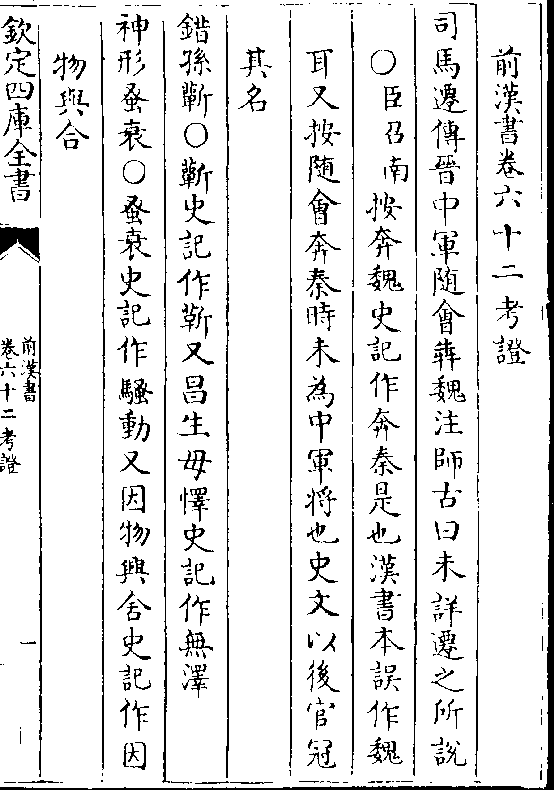 前漢書卷六十二考證
司馬遷傳晉中軍隨會犇魏注師古曰未詳遷之所說
○臣召南按奔魏史記作奔秦是也漢書本誤作魏
耳又按隨會奔秦時未為中軍將也史文以後官冠
其名
錯孫蘄○蘄史記作靳又昌生毋懌史記作無澤
神形蚤衰○蚤衰史記作騷動又因物與舍史記作因
物與合
欽定四庫全書
前漢書
卷六十二考證
一